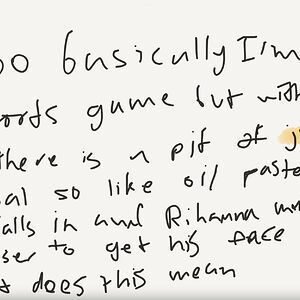 basically I'm
game but with
there is a pit of
so like oil paste
in and Rihanna
to get his face
does this mean